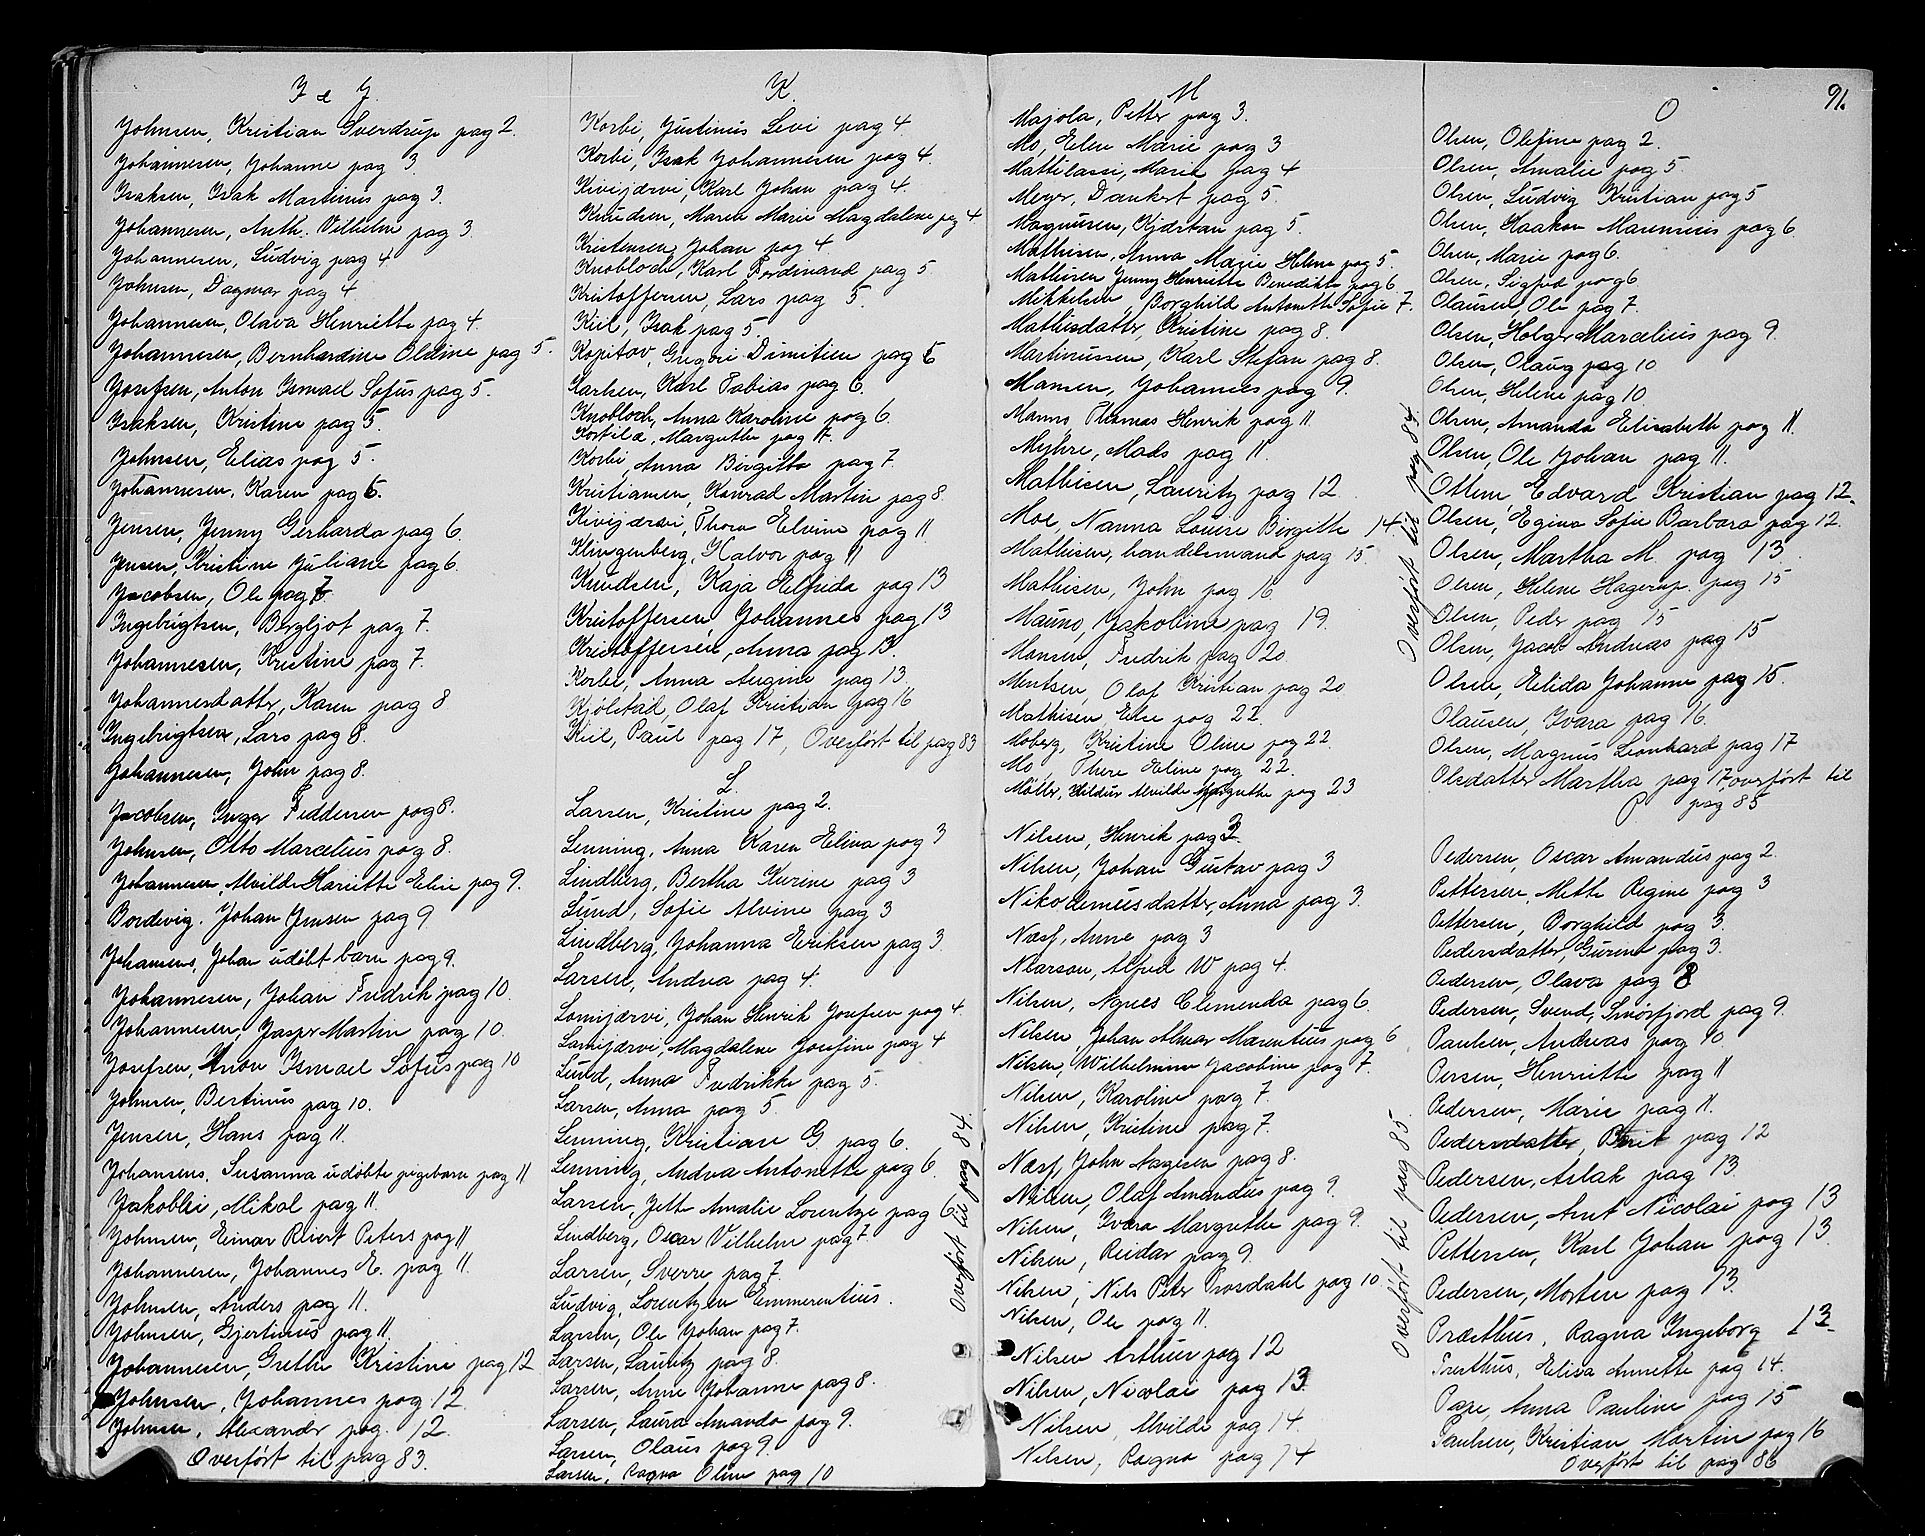 I & J.
Johnsen, Kristian Sverdrup pag 2.
Johannesen, Johanne pag 3.
Isaksen, Isak Martinus pag 3.
Johannesen, Anth. Vilhelm pag 3.
Johannesen, Ludvig pag 4.
Johnsen, Dagmar pag 4.
Johannesen, Olava Henriette pag 4.
Johannesen, Bernhardine Oldine pag 5.
Josefsen, Anton Ismael Sofus pag 5.
Isaksen, Kristine pag 5.
Johnsen, Elias pag 5.
Johannesen, Karen pag 6.
Jensen, Jenny Gerharda pag 6.
Jensen, Kristine Juliane pag 6.
Jacobsen, Ole pag 7.
Ingebrigtsen, Bergljot pag 7.
Johannesen, Kristine pag 7.
Johannesdatter, Karen pag 8
Ingebrigtsen, Lars pag 8.
Johannesen, John pag 8.
Jacobsen, Inger Feddersen pag 8.
Johnsen, Otto Marcelius pag 8.
Johannesen, Alvilde Hariette Elise pag 9.
Bordevig. Johan Jensen pag 9
Johansens, Johan udöbt barn pag 9.
Johannesen, Johan Fredrik pag 10.
Johannesen, Jasper Martin pag 10.
Josefsen, Anton Ismael Sofus pag 10
Johnsen, Bertinus pag 10.
Jensen, Hans pag 11.
Johansens, Susanna udöbte pigebarn pag 11
Jakoblei, Mikal pag 11.
Johnsen, Einar Rivert Peters pag 11
Johannesen, Johannes E. pag 11.
Johnsen, Anders pag 11.
Johnsen, Gjertinus pag 11.
Johannesen, Grethe Kristine pag 12
Johnsen, Johannes pag 12
Johnsen, Alexander pag. 12.
Overfört til pag 83.
K.
Korbi, Justinus Levi pag 4.
Korbi, Isak Johannesen pag 4.
Kivijærvi, Karl Johan pag 4.
Knudsen, Maren Marie Magdalene pag 4
Kristensen, Johan pag 4.
Knobloch, Karl Ferdinand pag 5.
Kristoffersen, Lars pag 5.
Kiil, Isak pag 5.
Kopitov, Gregori Dimitien pag 6
Karlsen, Karl Tobias pag 6.
Knobloch, Anna Karoline pag 6.
Kortila, Margrethe pag 7.
Korbi, Anna Birgitta pag 7.
Kristiansen, Konrad Martin pag 8.
Kivijærvi, Thora Elvine pag 11.
Klingenberg, Halvor pag 11
Knudsen, Kaja Elfrida pag 13
Kristoffersen, Johannes pag 13
Kristoffersen, Anna pag 13.
Korbi, Anna Augine pag 13.
Kjölstad, Olaf Kristian pag 16
Kiil, Paul pag 17, Overfört til pag 83
L.
Larsen, Kristine pag 2.
Lenning, Anna Karen Elina pag 3
Lindberg, Bertha Kurine pag 3
Lund, Sofie Alvine pag 3
Lindberg, Johanna Eriksen pag 3.
Larsen, Andrea pag 4.
Lomijærvi, Johan Henrik Josefsen pag 4.
Lamijærvi, Magdalene Josefine pag 4
Lund, Anna Fredrikke pag 5.
Larsen, Anna pag 5.
Lenning, Kristian G. pag 6.
Lenning, Andrea Antonette pag 6.
Larsen, Jett Amalie Lorentze pag 6
Lindberg, Oscar Vilhelm pag 7.
Larsen, Sverre pag 7.
Ludvig, Lorentzen Emmerentius.
Larsen, Ole Johan pag 7.
Larsen, Lauritz pag 8.
Larsen, Anne Johanne pag 8.
Larsen, Laura Amanda pag 9.
Larsen, Olaus pag 9.
Larsen, Ragna Oline pag 10
Overfört til pag 84.
M
Majola, Petter pag 3.
Mo, Elen Marie pag 3
Mattilassi, Marie pag 4
Meyer, Dankert pag 5.
Magnussen, Kjærstan pag 5.
Mathisen, Anna Marie Helene pag 5
Mathisen Jenny Henriette Benedikte pag 6
Mikkelsen, Borghild Antonette Sofie 7.
Mathisdatter, Kristine pag 8.
Martinussen, Karl Stefan pag 8.
Mansen, Johannes pag 9.
Manns, Thomas Henrik pag 11.
Myhre, Mads pag 11.
Mathisen, Lauritz pag 12
Moe, Nanna Louise Birgitte 14.
Mathisen, handelsmand pag 15.
Mathisen, John pag 16
Mauno, Jakobine pag 19.
Monsen, Fredrik pag 20
Mentsen, Olaf Kristian pag 20
Mathisen, Else pag 22.
Moberg, Kristine Oline pag 22.
Mo, There Eline pag 22.
Möller, Hildur Alvilde Margrethe pag 23
Nilsen, Henrik pag 2.
Nilsen, Johan Gustav pag 3
Nikodemusdatter, Anna pag 3.
Næss, Anne pag 3
Nearson, Alfred W pag 4.
Nilsen, Agnes Clemenda pag 6.
Nilsen, Johan Almar Marentius pag 6
Nilsen, Wilhelmine Jacobine pag 7.
Nilsen, Karoline pag 7.
Nilsen, Kristine pag 7.
Næss, John Aagesen pag 8.
Nilsen, Olaf Amandus pag 9.
Nilsen, Ivara Margrethe pag 9.
Nilsen, Reidar pag 9.
Nilsen, Nils Peter Trosdahl pag 10.
Nilsen, Ole pag 11.
Nilsen Arthur pag 12
Nilsen, Nicolai pag 13
Nilsen, Alvilde pag 14.
Nilsen, Ragna pag 14
Overfört til pag 84.
Overfört til pag 85.
91.
O
Olsen, Olefine pag 2.
Olsen, Amalie pag 5.
Olsen, Ludvig Kristian pag 5
Olsen, Haakon Marensius pag 6
Olsen, Marie pag 6.
Olsen, Sigfred pag 6
Olausen, Ole pag 7.
Olsen, Holger Marcelius pag 9.
Olsen, Olaug pag 10
Olsen, Helene pag 10.
Olsen, Amanda Elisabeth pag 11.
Olsen, Ole Johan pag 11.
Ottem, Edvard Kristian pag 12.
Olsen, Egina Sofie Barbara pag 12.
Olsen, Martha M. pag 13.
Olsen, Helene Hagerup. pag 15
Olsen, Peder pag 15
Olsen, Jacob Andreas pag 15
Olsen, Elida Johanne pag 15.
Olausen, Ivara pag 16.
Olsen, Magnus Leonhard pag 17
Olsdatter Martha pag 17 overfört til
P pag 85
Pedersen, Oscar Amandus pag 2.
Pettersen, Mette Regine pag 3
Pettersen, Borghild pag 3.
Pedersdatter, Gurine pag 3.
Pedersen, Olava pag 8
Pedersen, Svend, Smörfjord pag 9.
Paulsen, Andreas pag 10.
Persen, Henriette pag 11
Pedersen, Marie pag 11.
Pedersdatter, Berit pag 12
Pedersen, Aslak pag 13.
Pedersen, Arnt Nicolai pag 13
Pettersen, Karl Johan pag 13.
Pedersen, Morten pag 13.
Præsthus, Ragna Ingeborg 13.
Presthus, Elisa Annette pag 14.
Pape, Anna Pauline pag 15
Paulsen, Kristian Martin pag 16
Overfört til pag 86